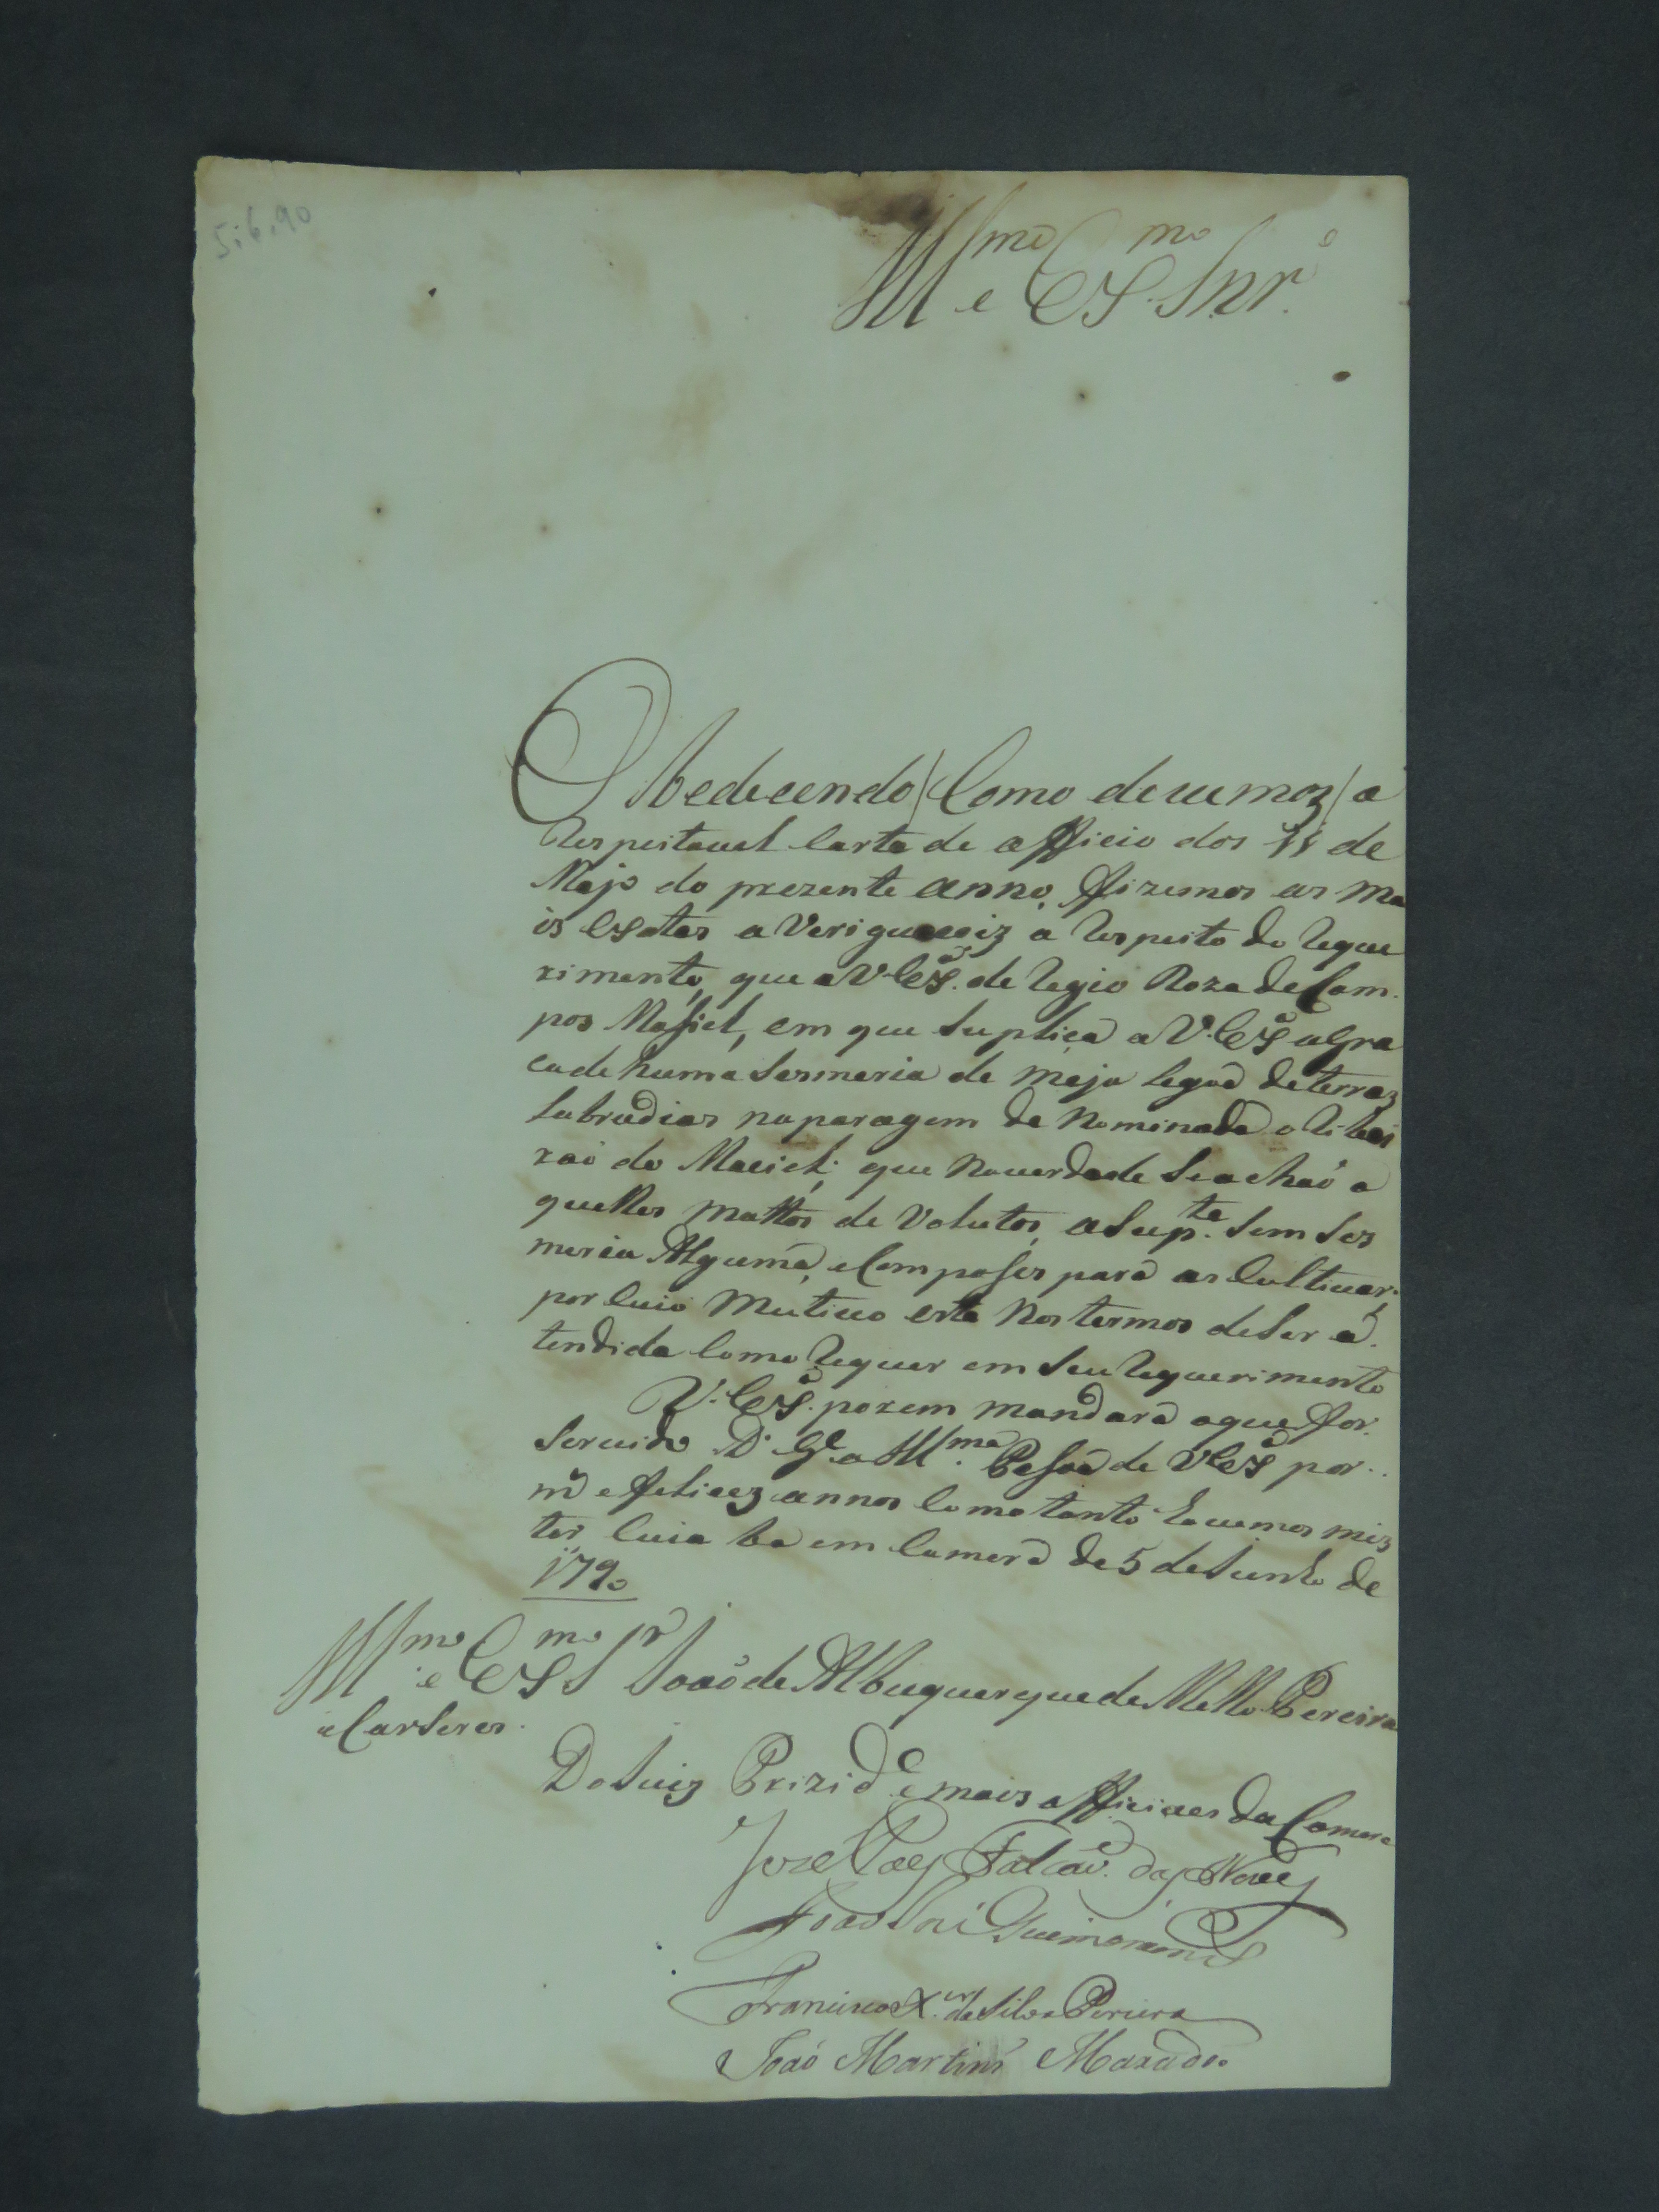 5.6.90
Ill.mo e Ex.mo Snr.
Obedecendo (Como devemoz) a
Respeitavel Carta de officio dos 11 de
Mayo do prezente anno, fizemos as ma
is Exatas a Veriguacoiz a Respeito do Reque
rimento, que a V. Ex.ª de Regio Roza de Cam
pos Masiel, em que Suplica a V. Ex.ª a Gra
ca de huma Sesmeria de meja legoa de terraz
Labradias na paragem de Nominada o Ribei
rão do Maciel; que na verdade Se achaõ a
quelles Mattos de Volutos, a Sup.te Sem Ses
meria Alguma, e Com posses para as Cultivar;
por Cuio Mutivo esta Nos termos de Ser a
tendida Como Requer em Seu Requerimento
V. Ex.ª porem mandará o que for
Servido D.s G.e a Ill.ma Pesoa de V Ex.ª por
m.s e felicez annos Como tanto havemos mis
ter Cuia ba em Camera de 5 de Junho de
1790
Ill.mo e Ex.mo Sr. Joaõ de Albuquerque de Mello Pereira
e Carseres.
Do Juiz Prizid.e e mais officiaes da Camera
Joze Paes Falcaõ das Neves
Joaõ Joze Guimaraens
Francisco X.er da Silva Pereira
Joaõ Martins Maxado